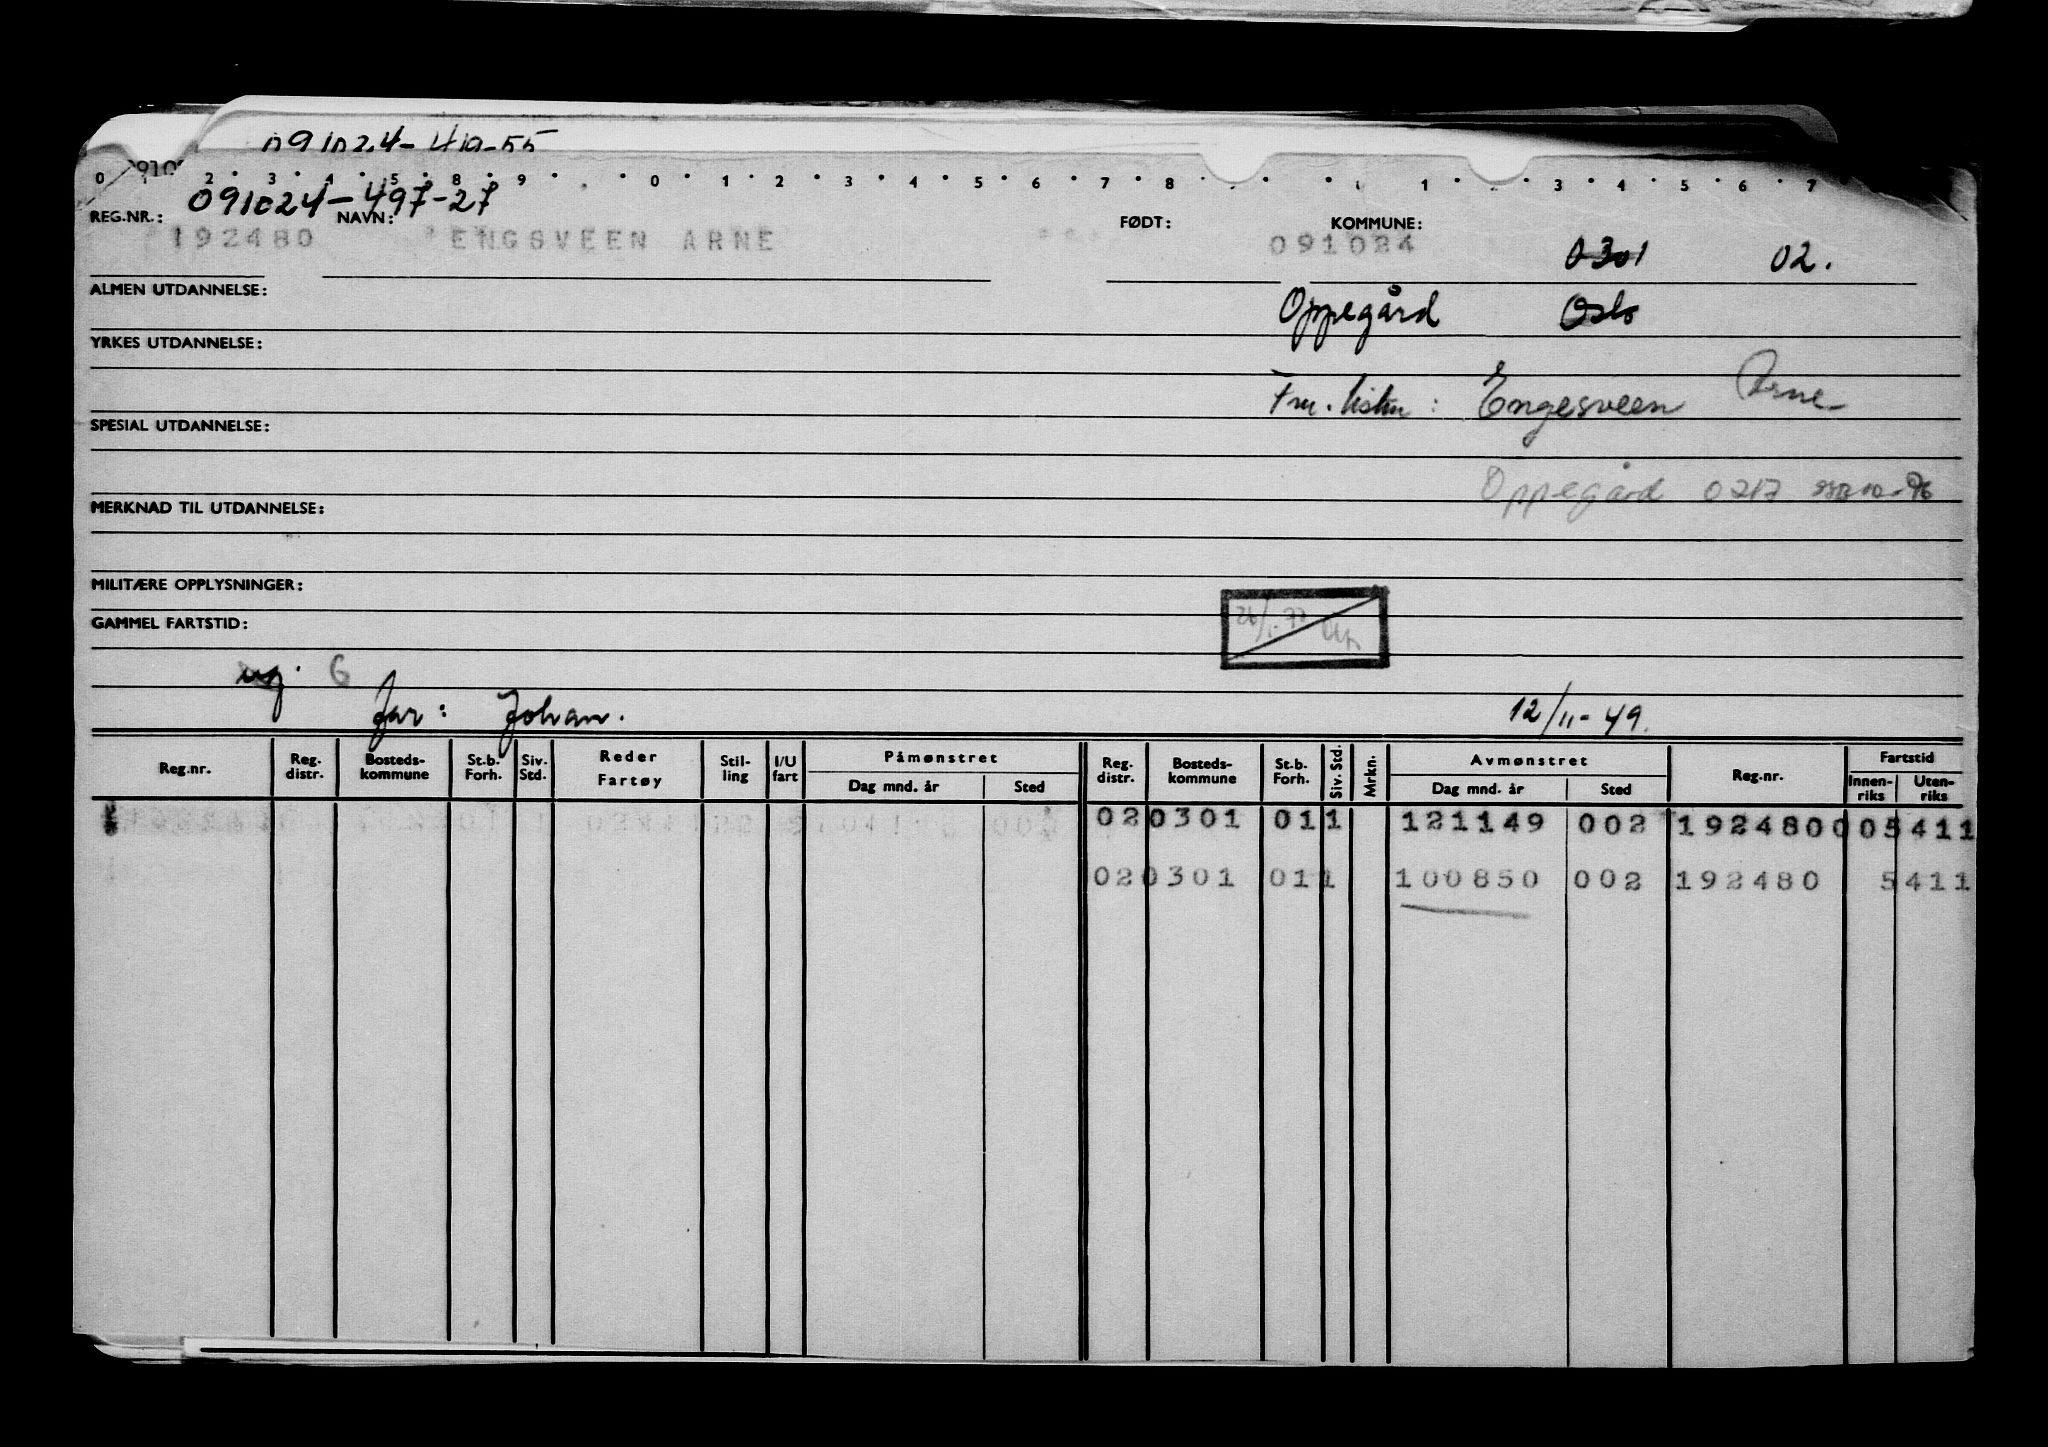 091024-410-55
0 1 2 3 4 5 8 9 0 1 2 3 4 5 6 7 8 1 3 4 5 6 7
091024-497-27
REG.NR.: NAVN: FØDT: KOMMUNE:
192480 ENGSVEEN ARNE 091024 0301 02.
ALMEN UTDANNELSE: Oppegård Oslo
YRKES UTDANNELSE:
: Engesveen Arne
SPESIAL UTDANNELSE:
Oppegård 0217
MERKNAD TIL UTDANNELSE:
MILITÆRE OPPLYSNINGER:
GAMMEL FARTSTID:
6
far: Johan. 12/11-49.
Reg.nr. Reg. distr. Bosteds-kommune St.b. Forh. Siv. Std. Reder Fartøy Stil-ling I/U fart Påmønstret Dag mnd. år Sted Reg. distr. Bosteds-kommune St.b. Forh. Siv. Std. Mrkn. Avmønstret Dag mnd. år Sted Reg.nr. Fartstid Innen-riks Uten-riks
020301 011 121149 002 1924800 05411
020301 011 100850 002 192480 5411